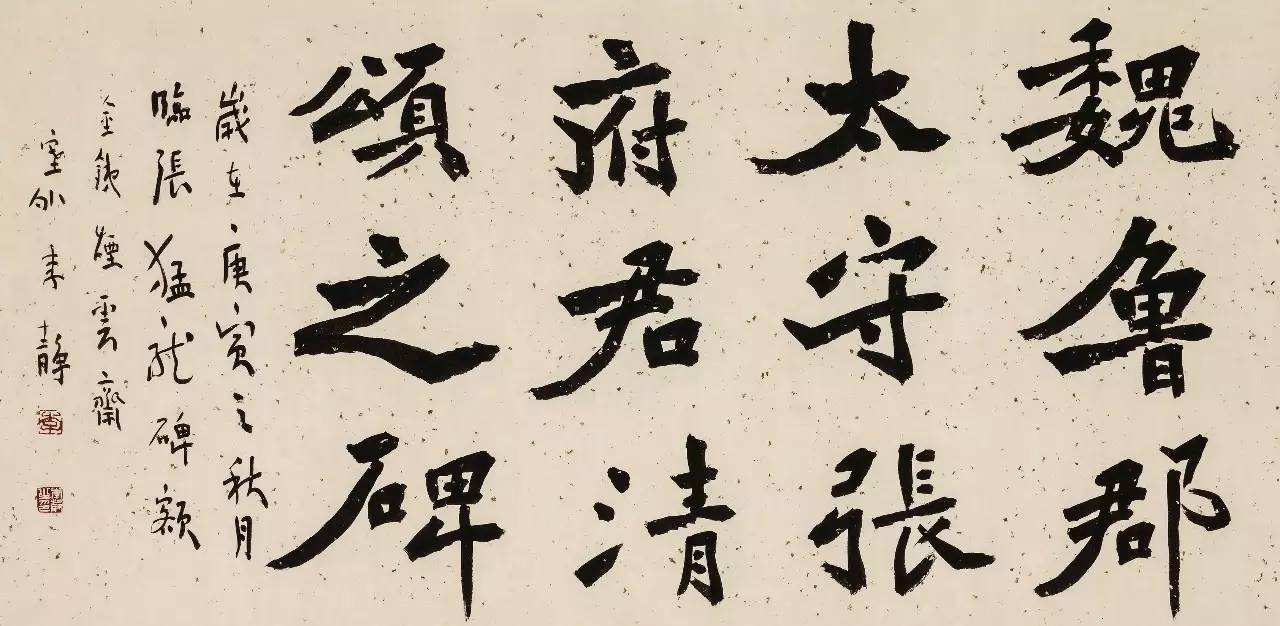 魏魯郡
太守張
府君清
頌之碑
歲在庚寅之秋月
臨張猛龍碑額
金錢煙雲齋
室小 来靜